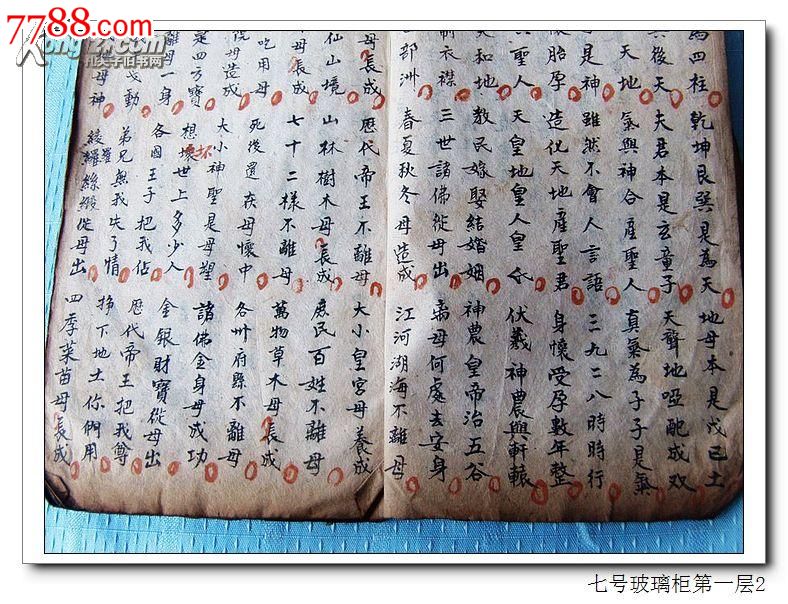 7788.com
为四柱 乾坤艮巽是為天 地母本是戊己土
其後天 夫君本是玄童子 天聾地啞配成双
天地 氣與神合產聖人 真氣為子子是氣
子是神 雖然不會人言語 三九二八時時行
胎孕 造化天地產聖君 身懷受孕數年整
聖人 天皇地皇人皇氏 伏羲神農與軒轅
天和地 教民嫁娶結婚姻 神農皇帝治五谷
制衣襟 三世諸佛從母出 离母何處去安身
部洲 春夏秋冬母造成 江河湖海不離母
母長成 歷代帝王不離母 大小皇宫母養成
仙山境 山林樹木母長成 庶民百姓不離母
母長成 七十二樣不離母 萬物草木母長成
吃用母 死後還在母懷中 各州府縣不離母
院母造成 大小神聖是母塑 諸佛金身母成功
是四方寶 想壞坏世上多少人 金銀財寶從母出
離母一身 各國王子把我佔 歷代帝王把我尊
動 弟兄無我失了情 挣下地土你們用
母神 綾羅絲緞從母出 四季菜苗母長成
七号玻璃柜第一层2